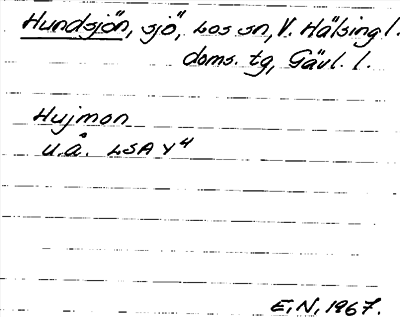 Hundsjön, sjö, Los sn, V. Hälsingl.
doms. tg, Gävl. l.
Hujmon
u.å. LSA Y4
E.N, 1967.